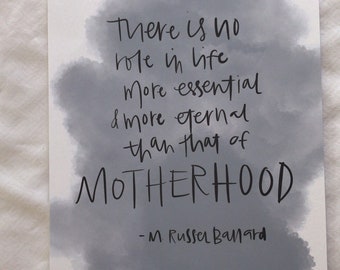 There is no
role in life
more essential
& more eternal
than that of
MOTHERHOOD
- M Russel Ballard